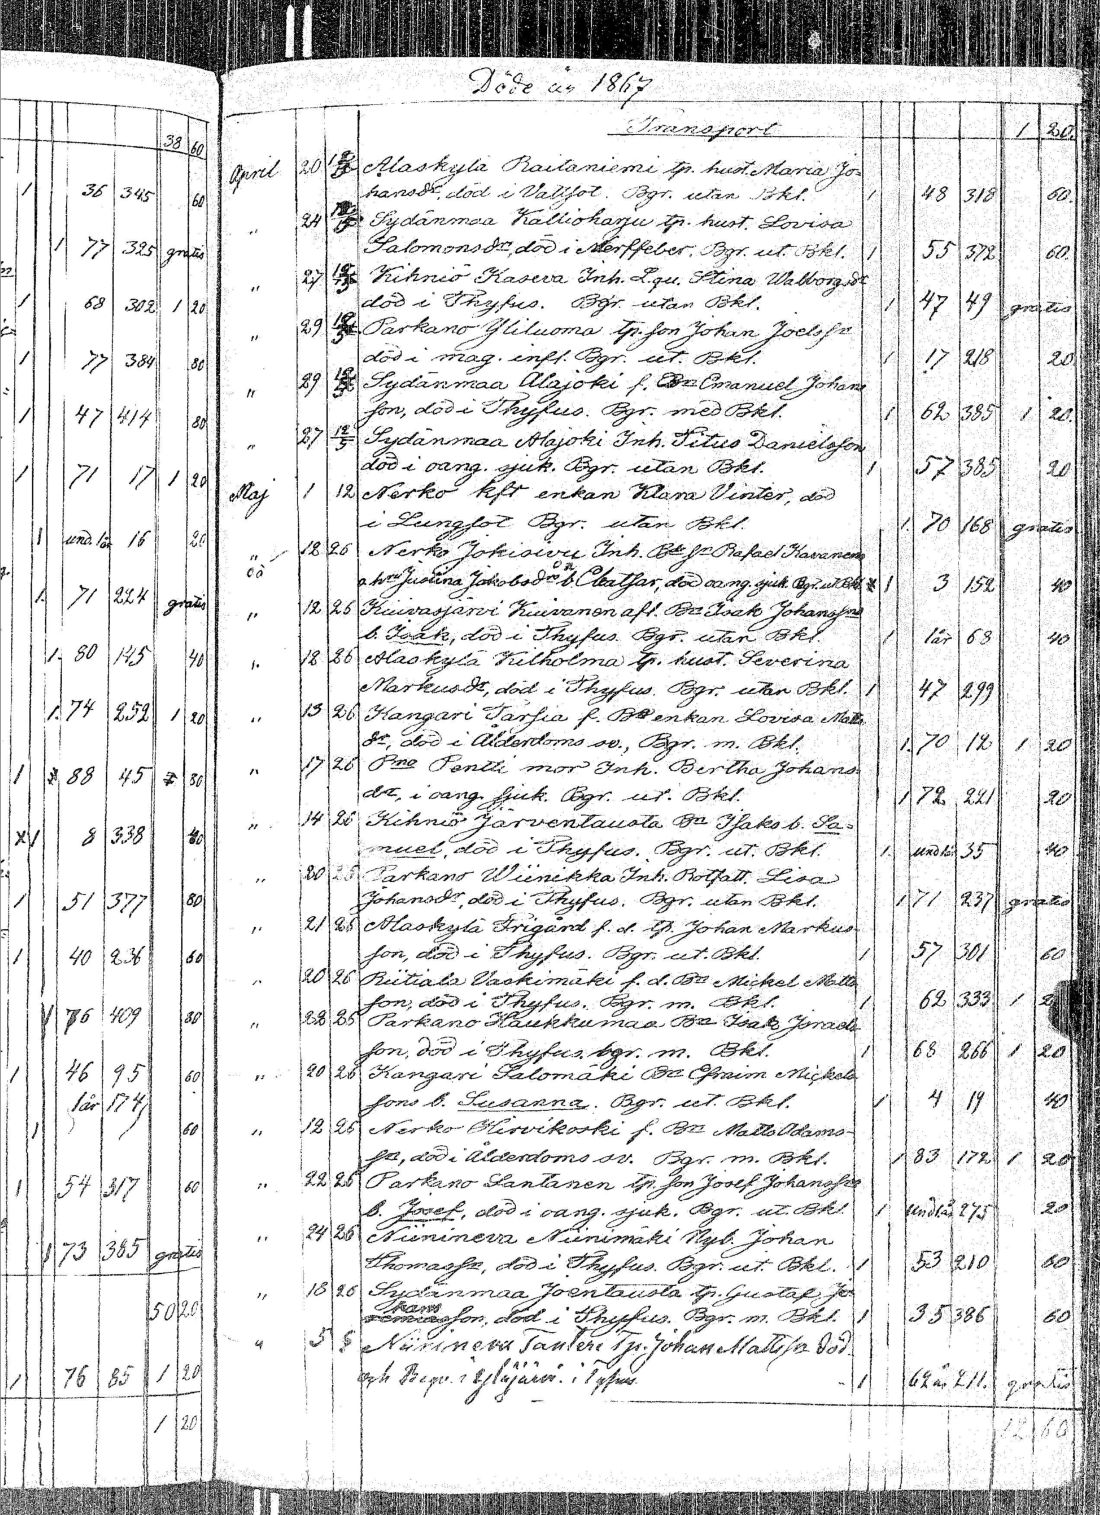 38 60
1 36 345 60
1 77 325 gratis
1 68 302 1 20
1 77 384 80
1 47 414 80
1 71 17 1 20
1 und. 1år 16 20
1. 71 224 gratis
1. 80 145 40
1. 74 252 1 20
1 88 45 80
1 8 338 40
1 51 377 80
1 40 236 60
76 409 80
1 46 95 60
1år 174
1 60
1 54 317 60
1 73 385 gratis
50 20
1 76 85 1 20
1 20
Döde år 1867
Transport 1 20.
April 20 Alaskylä Raitaniemi tp. hust. Maria Jo-
hansdr, död i Vattsot. Bgr. utan Bkl. 1 48 318 60
„ 24 Sydänmaa Kallioharju tp. hust. Lovisa
Salomonsdr, död i Nerffeber. Bgr. ut. Bkl. 1 55 372 60.
„ 27 12/5 Kihniö Kaseva Inh. Q.qu. Stina Walborgsdr
död i Thyfus. Bgr. utan Bkl. 1 47 49 gratis
„ 29 Parkano Yliluoma tp. son Johan Joelsson
död i mag. infl. Bgr. ut. Bkl. 1 17 218 20
„ 29 Sydänmaa Alajoki f. Bn Emanuel Johans
son, död i Thyfus. Bgr. med Bkl. 1 62 385 1 20.
„ 27 12/5 Sydänmaa Alajoki Inh. Titus Danielsson
död i oang. sjuk. Bgr. utan Bkl. 1 57 385 20
Maj 1 12 Nerko kft enkan Klara Vinter, död
i Lungsot Bgr. utan Bkl. 1. 70 168 gratis
„ 12 26 Nerko Jokisuu Inh. Rafael Kavanens
a hru Justina Jakobsdr oä b. död oang. sjuk. Bgr. ut. Bkl 1 3 152 40
„ 12 26 Kuivasjärvi Kuivanen afl. Bn Isak Johanssons
b. Isak, död i Thyfus. Bgr. utan Bkl. 1 1år 68 40
„ 12 26 Alaskylä Kilholma tp. hust. Severina
Markusdr, död i Thyfus. Bgr. utan Bkl. 1 47 299
„ 13 26 Kangari Tarsia f. Bn enkan Lovisa Matts
dr, död i Ålderdoms sv., Bgr. m. Bkl. 1. 70 12 1 20
„ 17 26 Pno Pentti mor Inh. Bertha Johans
dr, i oang. sjuk. Bgr. ut. Bkl. 1 72 221 20
„ 14 26 Kihniö Järventausta Bn Isaks b. Sa-
muel, död i Thyfus. Bgr. ut. Bkl. 1. und 1år 35 40
„ 20 26 Parkano Wiinikka Inh. Rotfatt. Lisa
Johansdr, död i Thyfus. Bgr. utan Bkl. 1 71 237 gratis
„ 21 26 Alaskylä Frigård f. d. tp. Johan Markus
son, död i Thyfus. Bgr. ut. Bkl. 1 57 301 60
„ 20 26 Riitiala Vaskimäki f. d. Bn Mickel Matts
son, död i Thyfus. Bgr. m. Bkl. 1 62 333 1 20
„ 22 26 Parkano Haukkumaa Bn Isak Israels
son, död i Thyfus. bgr. m. Bkl. 1 68 266 1 20
„ 20 26 Kangari Salomäki Bn Efraim Mickels
sons b. Susanna. Bgr. ut. Bkl. 1 4 19 40
„ 12 26 Nerko Hirvikoski f. Bn Matts Adams-
sn, död i Ålderdoms sv. Bgr. m. Bkl. 1 83 172 1 20
„ 22 26 Parkano Lantanen tp. son Josef Johanssons
b. Josef, död i oang. sjuk. Bgr. ut. Bkl. 1 und 1år 275 20
„ 24 26 Niinineva Niinimäki Nyb. Johan
Thomassn, död i Thyfus. Bgr. ut. Bkl. 1 53 210 60
„ 18 26 Sydänmaa Joentausta tp. Gustaf Jo
hans
son, död i Thyfus. Bgr. m. Bkl. 1 35 386 60
„ 5 Niinineva Tp. Johan Mattsson död
och Begr. i i Tyfus. 1 62 år 211. gratis
12 60